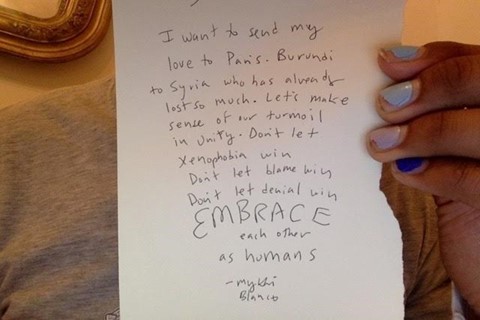 I want to send my
love to Paris. Burundi
to Syria who has already
lost so much. Let's make
sense of our turmoil
in unity. Don't let
xenophobia win
Don't let blame win
Don't let denial win
EMBRACE
each other
as humans
-mykki
Blanco